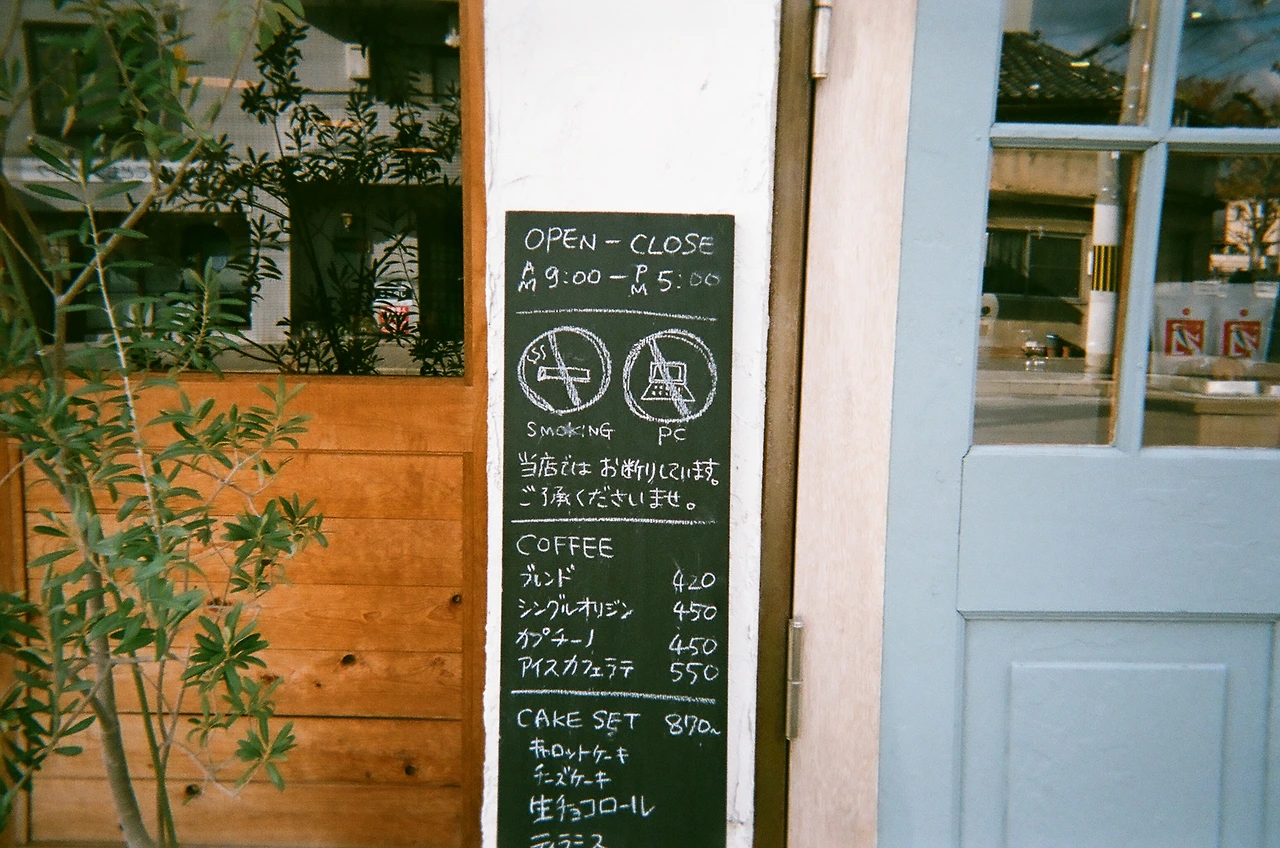 OPEN - CLOSE
AM 9:00 - PM 5:00
SMOKING PC
当店では お断りしています。
ご了承くださいませ。
COFFEE
ブレンド 420
シングルオリジン 450
カプチーノ 450
アイスカフェラテ 550
CAKE SET 870~
キャロットケーキ
チーズケーキ
生チョコロール
ティラミス